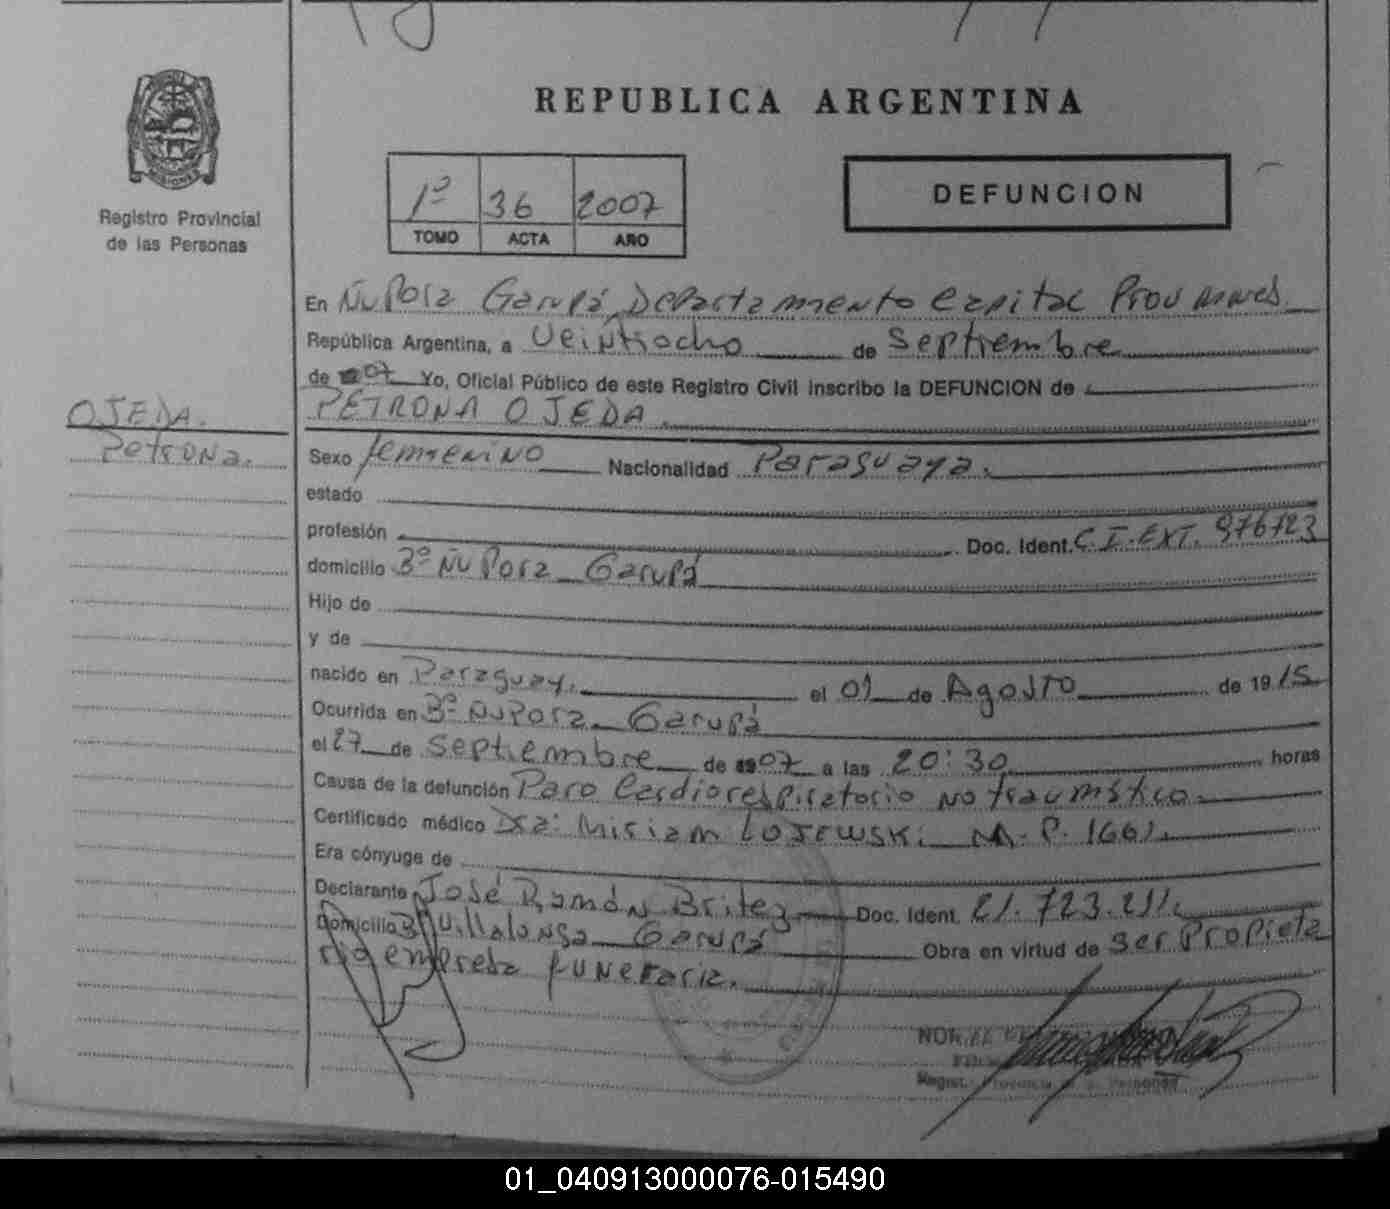 REPUBLICA ARGENTINA
MISIONES
Registro Provincial
de las Personas
1º 36 2007
TOMO ACTA AÑO
DEFUNCION
En Ñu Pora Garupá, Departamento Capital Prov
República Argentina, a Veintiocho de Septiembre
de 07 Yo, Oficial Público de este Registro Civil inscribo la DEFUNCION de
PETRONA OJEDA.
OJEDA.
Petrona.
Sexo femenino Nacionalidad Paraguaya.
estado
profesión Doc. Ident. C.I. EXT. 976723
domicilio 3º Ñu Pora Garupá
Hijo de
y de
nacido en Paraguay. el 01 de Agosto de 1915
Ocurrida en 3º Ñu Pora Garupá
el 27 de Septiembre de 07 a las 20:30 horas
Causa de la defunción Paro Cardiorespiratorio no traumático.
Certificado médico Dra: Miriam M.P. 1661.
Era cónyuge de
Declarante José Ramón Britez Doc. Ident. 21.723.211.
Domicilio Bº Villalonga Garupá Obra en virtud de ser Propieta
rio empresa funeraria.
01_040913000076-015490